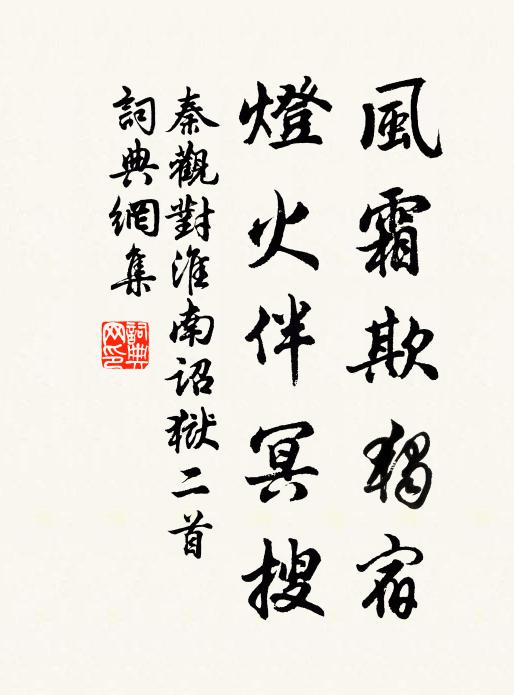 風霜欺獨宿
燈火伴冥搜
秦觀對淮南詔獄二首
詞典網集
詞典網印